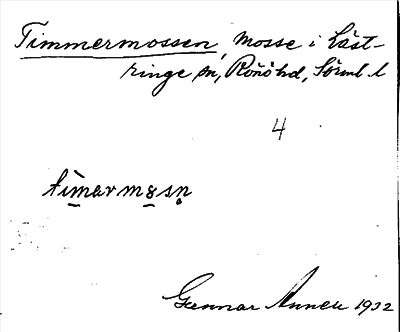 Timmermossen, mosse i Läst-
ringe sn, Rönö hd, Södml. l
4
timarmosn
Gunnar 1932